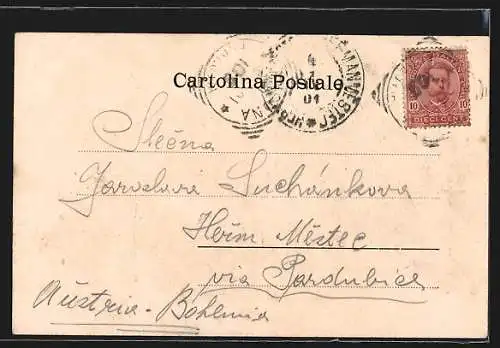 Cartolina Postale.
HERMANNMESTEC
4
01
10 10
DIECI CENT
Slečna
Jaroslava Suchánkova
Heřm. Městec
via Pardubice
Austria - Bohemia